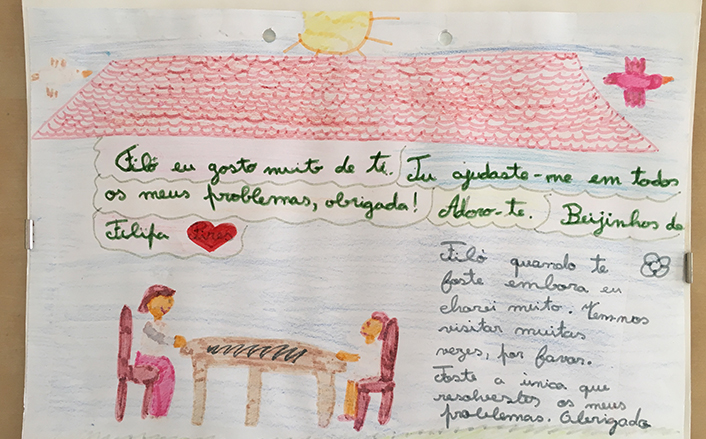 Filó eu gosto muito de ti. Tu ajudaste-me em todos
os meus problemas, obrigada! Adoro-te. Beijinhos de
Filipa Pires
Filó quando te
foste embora eu
chorei muito. Vem-nos
visitar muitas
vezes, por favor.
Foste a única que
resolvestes os meus
problemas. Obrigado